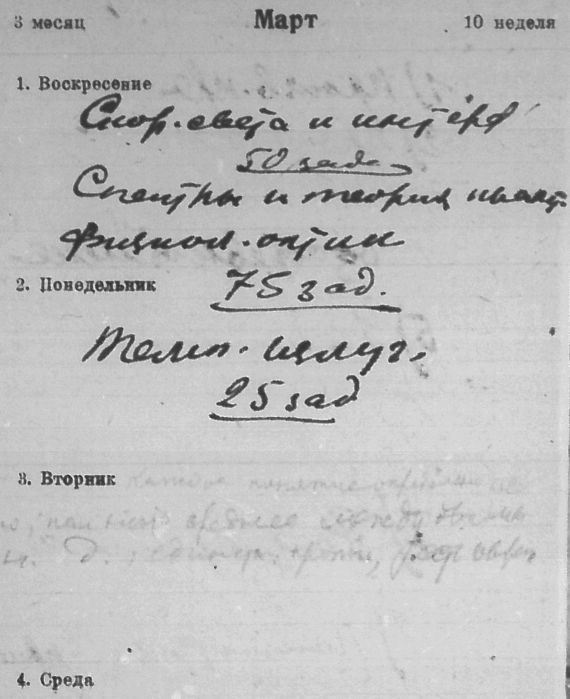 3 месяц Март 10 неделя
1. Воскресение
Скор. света и интерф
50 зад.
Спектры и теория квант.
Физиол. оптик
2. Понедельник
75 зад.
Темп. излуч.
25 зад
3. Вторник
4. Среда